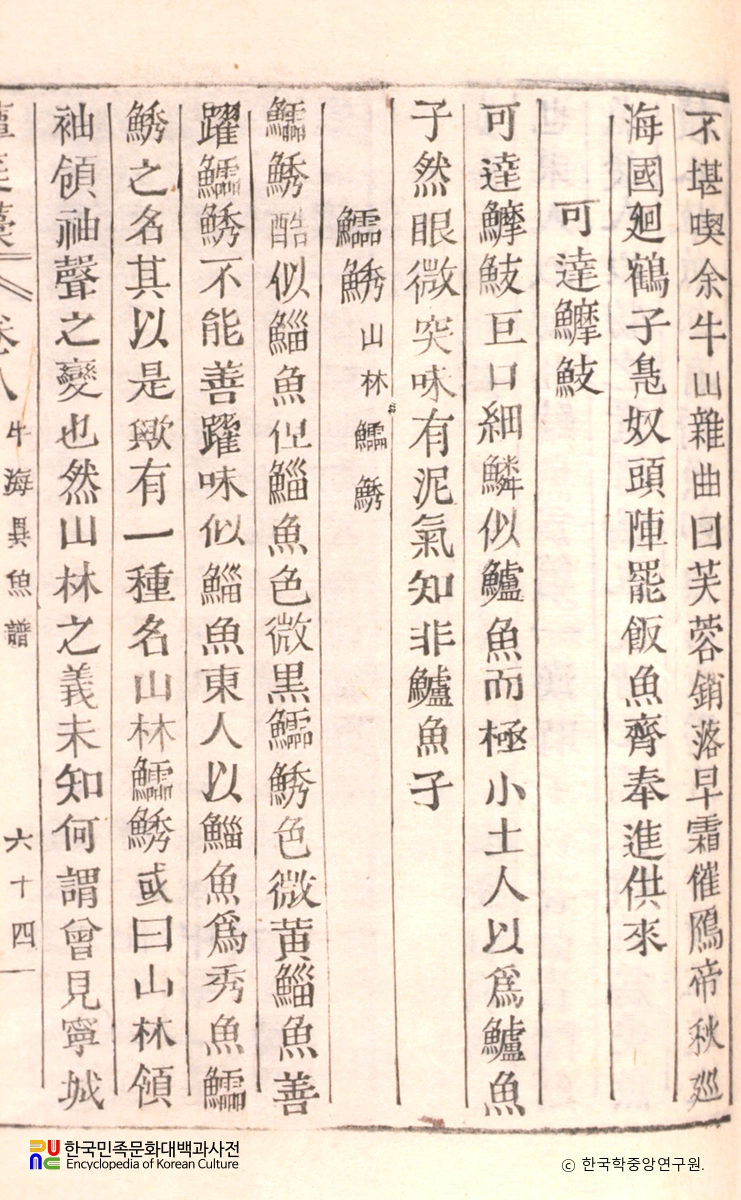 不堪喫余牛山雜曲曰芙蓉銷落早霜催鴈帝秋廵
海國廻鶴子鳧奴頭陣罷飯魚齊奉進供來
可達鱆䰴
可達鱆䰴巨口細鱗似鱸魚而極小土人以爲鱸魚
子然眼微突味有泥氣知非鱸魚子
鱬鮬 山林鱬鮬
鱬鮬酷似鯔魚但鯔魚色微黒鱬鮬色微黄鯔魚善
躍鱬鮬不能善躍味似鯔魚東人以鯔魚爲秀魚鱬
鮬之名其以是歟有一種名山林鱬鮬或曰山林領
袖領袖聲之變也然山林之義未知何謂曾見寧城
藫庭藁 卷八 牛海異魚譜 六十四
한국민족문화대백과사전
Encyclopedia of Korean Culture
ⓒ 한국학중앙연구원.